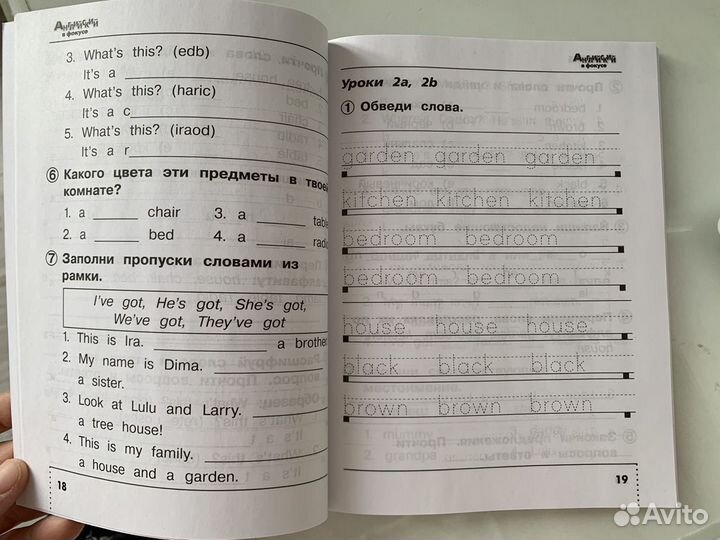 Английский
в фокусе
3. What's this? (edb)
It's a
4. What's this? (haric)
It's a c
5. What's this? (iraod)
It's a r
6 Какого цвета эти предметы в твоей
комнате?
1. a ______ chair 3. a ______ table
2. a ______ bed 4. a ______ radio
7 Заполни пропуски словами из
рамки.
I've got, He's got, She's got,
We've got, They've got
1. This is Ira. ______ a brother.
2. My name is Dima. ______
a sister.
3. Look at Lulu and Larry. ______
a tree house!
4. This is my family. ______
a house and a garden.
18
Английский
в фокусе
Уроки 2a, 2b
1 Обведи слова.
garden garden garden
kitchen kitchen kitchen
bedroom bedroom
bedroom bedroom
house house house
black black black
brown brown brown
19
Avito